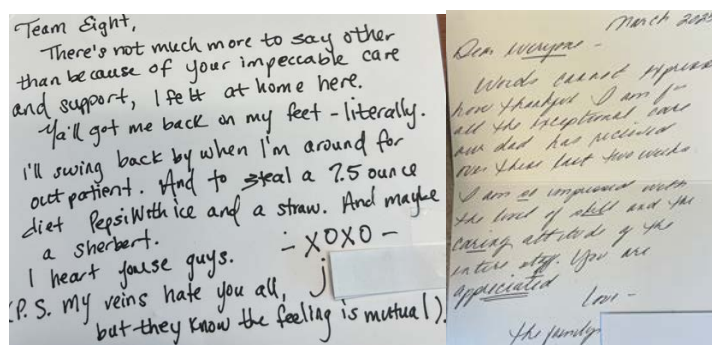 Team Eight,
There's not much more to say other
than because of your impeccable care
and support, I felt at home here.
Ya'll got me back on my feet - literally.
I'll swing back by when I'm around for
outpatient. And to steal a 7.5 ounce
diet Pepsi With ice and a straw. And maybe
a sherbert.
- XOXO -
I heart youse guys.
J
(P.S. my veins hate you all,
but they know the feeling is mutual).
March
Dear everyone -
Words cannot express
how thankful I am for
all the exceptional care
our dad has received
over these last two weeks.
I am so impressed with
the level of skill and the
caring attitude of the
entire staff. You are
appreciated
Love -
the family